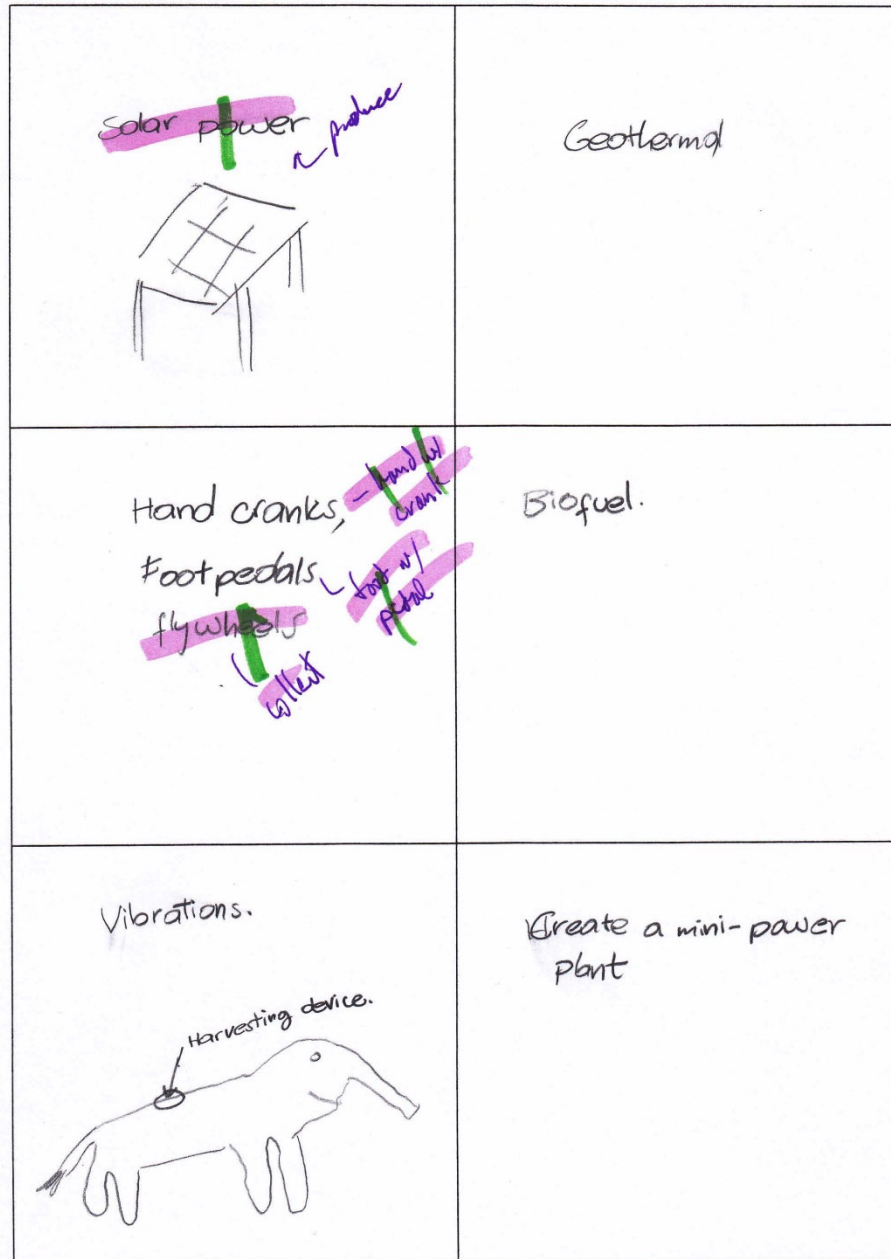 Solar power
produce
Geothermal
Hand cranks,
- hand w/
crank
Footpedals
foot w/
pedal
flywheels
collect
Biofuel.
Vibrations.
Harvesting device.
Create a mini-power
plant